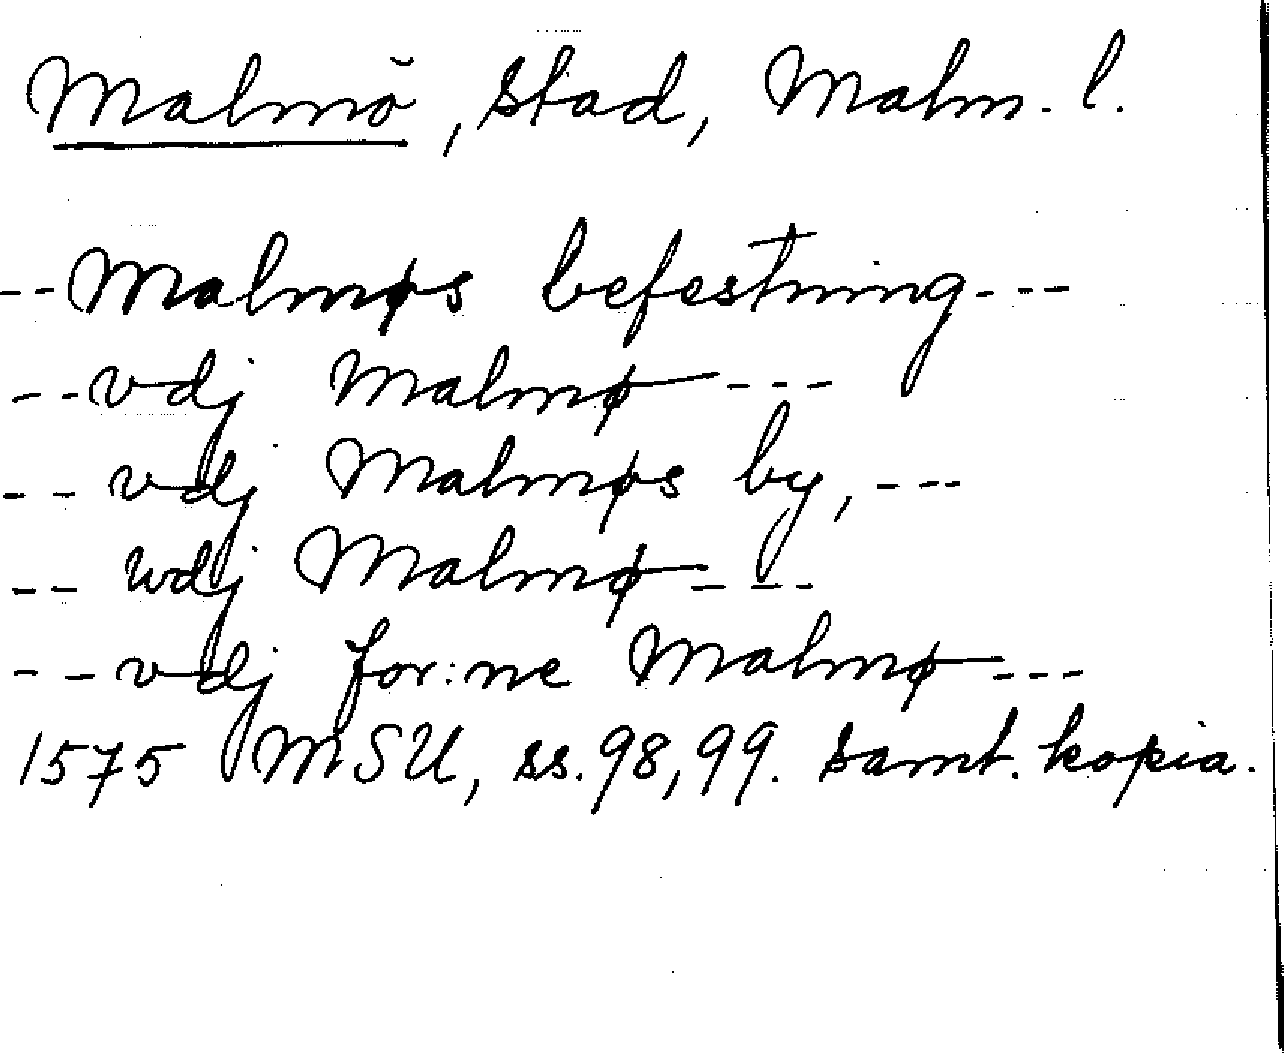 Malmö, stad, Malm. l.
--Malmøs befestning---
--vdj Malmø---
-- vdj Malmøs by, ---
-- wdj Malmø---
--vdj for:ne Malmø---
1575 MSU, ss. 98, 99. samt. kopia.